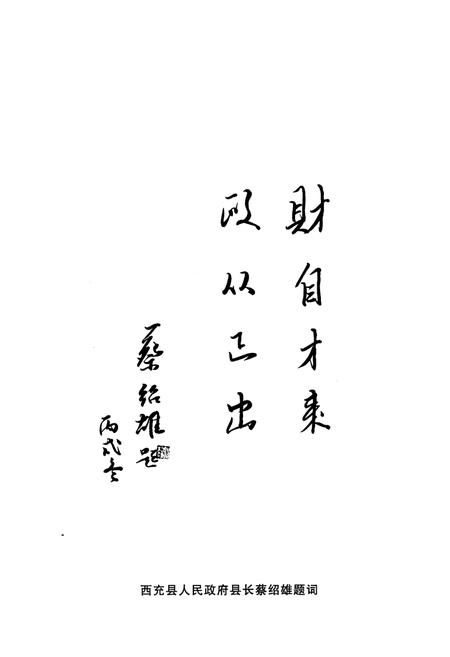 财自才来
政从正出
蔡绍雄题
丙戌冬
西充县人民政府县长蔡绍雄题词